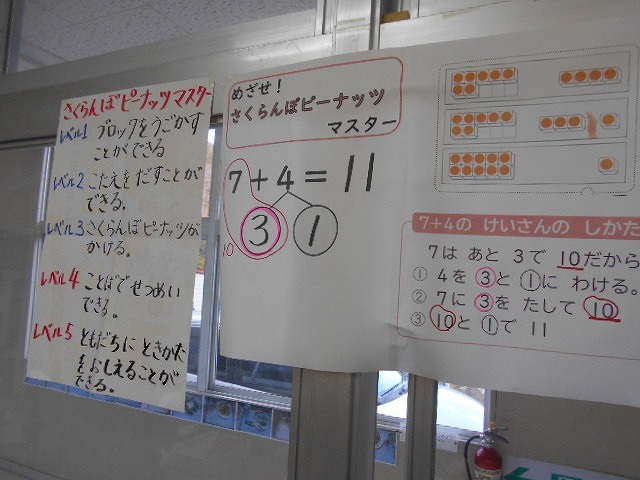 さくらんぼピーナッツマスター
レベル1 ブロックをうごかす
ことができる
レベル2 こたえをだすことが
できる。
レベル3 さくらんぼピーナッツが
かける。
レベル4 ことばでせつめい
できる。
レベル5 ともだちに ときかた
をおしえることが
できる。
めざせ!
さくらんぼピーナッツ
マスター
7+4=11
3 1
10
7+4の けいさんの しかた
7は あと 3で 10だから
① 4を ③と ①に わける。
② 7に ③を たして 10
③ 10と ①で 11